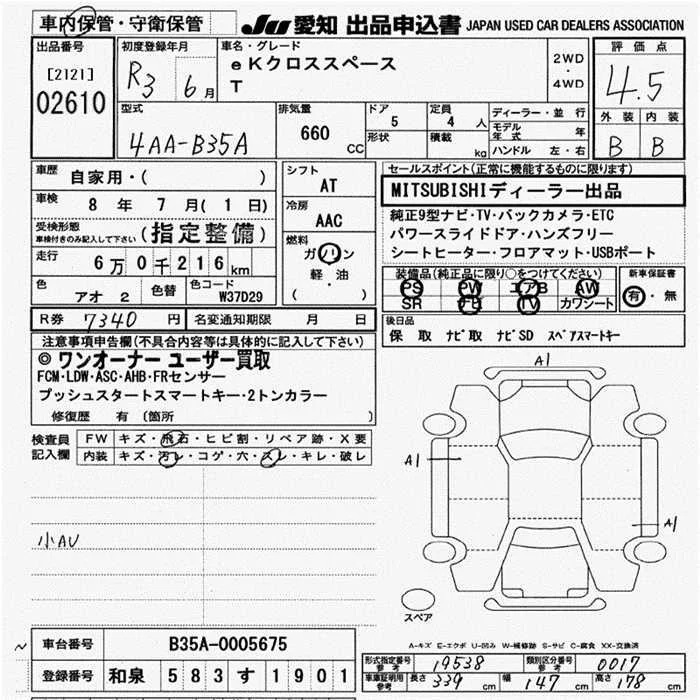 車内保管・守衛保管
JU 愛知 出品申込書 JAPAN USED CAR DEALERS ASSOCIATION
出品番号
[2121]
02610
初度登録年月
R3 6月
車名・グレード
eKクロススペース
T
2WD
・
4WD
評価点
4.5
外装 内装
B B
型式
4AA-B35A
排気量
660 CC
ドア
5
形状
定員
4 人
積載
kg
ディーラー・並行
モデル年式 年
ハンドル 左・右
車歴
自家用・( )
車検
8 年 7 月( 1 日)
受検形態
車検付きのみ記入して下さい
(指定整備)
走行
6万0千216km
色
アオ 2
色替
色コード
W37D29
シフト
AT
冷房
AAC
燃料
ガソリン
軽・油
( )
セールスポイント(正常に機能するものに限ります)
MITSUBISHIディーラー出品
純正9型ナビ・TV・バックカメラ・ETC
パワースライドドア・ハンズフリー
シートヒーター・フロアマット・USBポート
装備品(純正品に限り○をつけてください)
PS PW エアB AW
SR FB TV カワシート
新車保証書
有・無
R券 7340 円
名変通知期限 月 日
後日品
保 取 ナビ取 ナビSD スペアスマートキー
注意事項申告欄(不具合内容等は具体的に記入して下さい)
◎ワンオーナー ユーザー買取
FCM・LDW・ASC・AHB・FRセンサー
プッシュスタートスマートキー・2トンカラー
修復歴 有 〔箇所 〕
検査員記入欄
FW キズ・飛石・ヒビ割・リペア跡・X要
内装 キズ・汚レ・コゲ・穴・スレ・キレ・破レ
小AU
A1
A1
A1
スペア
A-キズ E-エクボ U-凹み W-補修跡 S-サビ C-腐食 XX-交換済
車台番号 B35A-0005675
登録番号 和泉 583す1901
形式指定番号参考 19538
類別区分番号参考 0017
車庫証明用参考 長さ 339 cm 幅 147 cm 高さ 178 cm